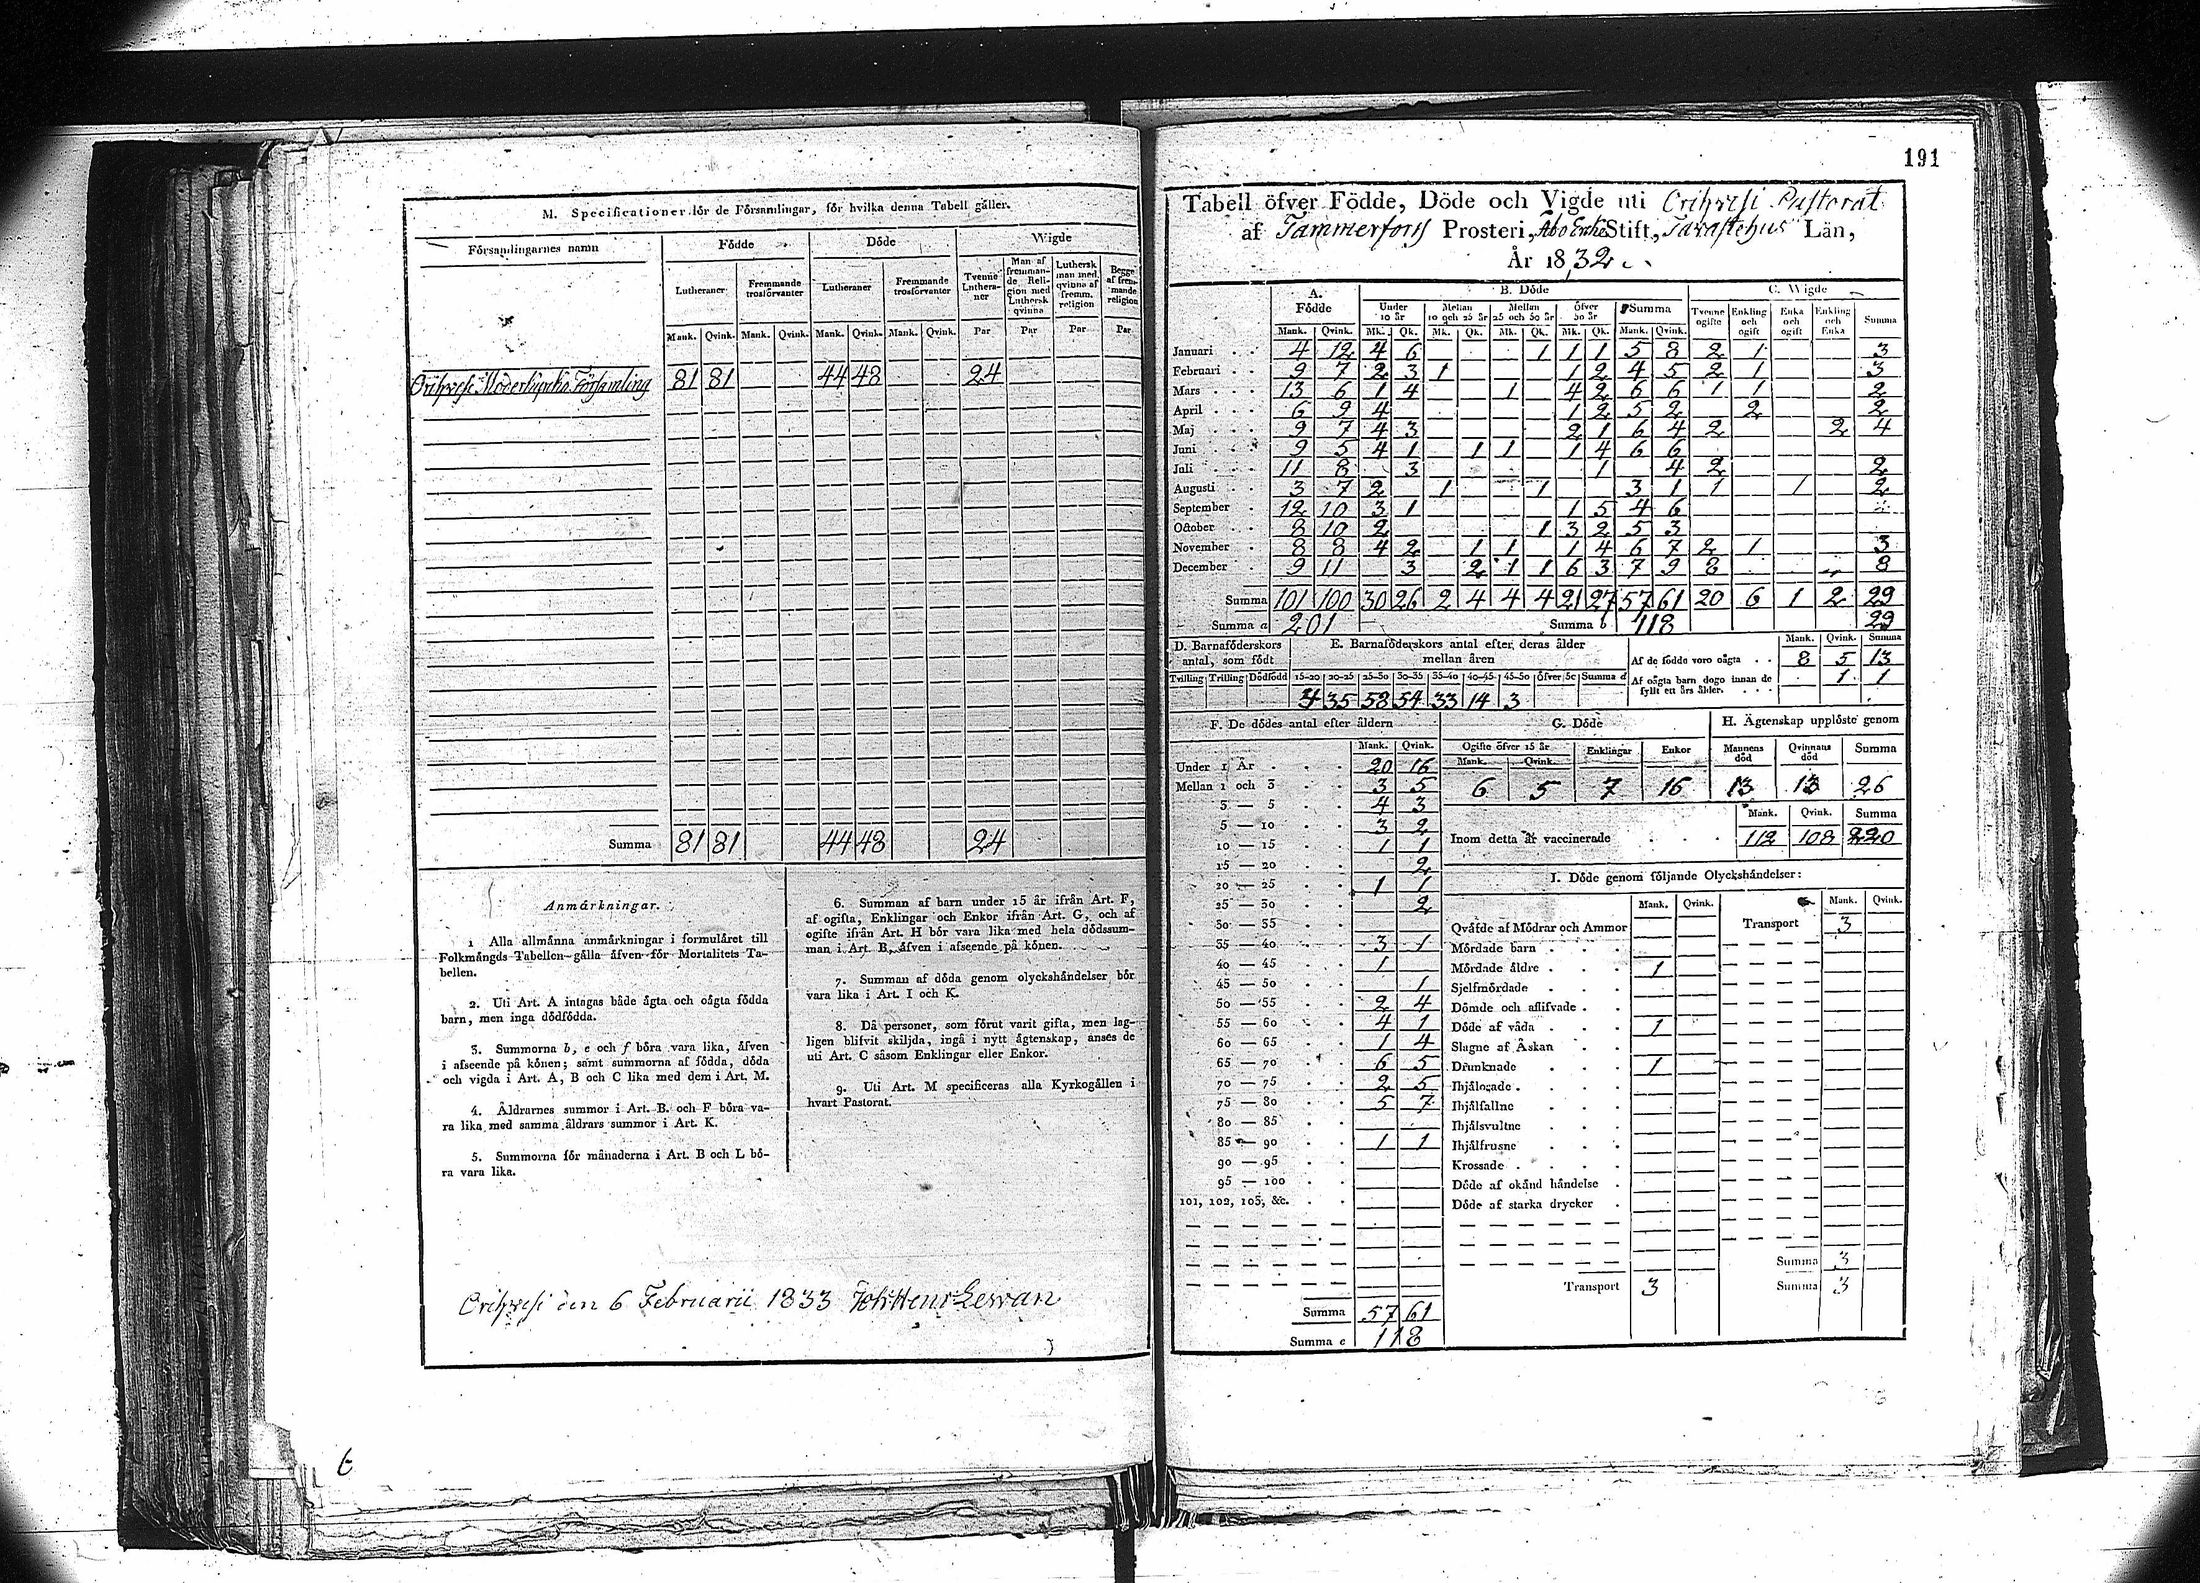 M. Specificationer för de Församlingar, för hvilka denna Tabell gäller.
Församlingarnes namn | Födde | Döde | Wigde
Lutheraner | Fremmande trosförvanter | Lutheraner | Fremmande trosförvanter | Tvenne Lutheraner | Man af fremmande Religion med Luthersk qvinna | Luthersk man med qvinna af fremm. religion | Begge af fremmande religion
Mank. | Qvink. | Mank. | Qvink. | Mank. | Qvink. | Mank. | Qvink. | Par | Par | Par | Par
Orihvesi Moderkyrko Församling | 81 | 81 | 44 | 48 | 24
Summa | 81 | 81 | 44 | 48 | 24
Anmärkningar.
1 Alla allmänna anmärkningar i formuläret till
Folkmängds Tabellen gälla äfven för Mortalitets Ta-
bellen.
2. Uti Art. A intagas både ägta och oägta födda
barn, men inga dödfödda.
3. Summorna b, e och f böra vara lika, äfven
i afseende på könen; samt summorna af födda, döda
och vigda i Art. A, B och C lika med dem i Art. M.
4. Åldrarnes summor i Art. B. och F böra va-
ra lika med samma åldrars summor i Art. K.
5. Summorna för månaderna i Art. B och L bö-
ra vara lika.
6. Summan af barn under 15 år ifrån Art. F,
af ogifta, Enklingar och Enkor ifrån Art. G, och af
ogifte ifrån Art. H bör vara lika med hela dödssum-
man i Art. B, äfven i afseende på könen.
7. Summan af döda genom olyckshändelser bör
vara lika i Art. I och K.
8. Då personer, som förut varit gifta, men lag-
ligen blifvit skiljda, ingå i nytt ägtenskap, anses de
uti Art. C såsom Enklingar eller Enkor.
9. Uti Art. M specificeras alla Kyrkogällen i
hvart Pastorat.
Orihvesi den 6 Februarii 1833 Joh: Henr: Lewan
6
191
Tabell öfver Födde, Döde och Vigde uti Orihvesi Pastorat
af Tammerfors Prosteri, Åbo Erke Stift, Tavastehus Län,
År 1832.
A. Födde | B. Döde | C. Wigde
Under 10 år | Mellan 10 och 25 år | Mellan 25 och 50 år | Öfver 50 år | Summa | Tvenne ogifte | Enkling och ogift | Enka och ogift | Enkling och Enka | Summa
Mank. | Qvink. | Mk. | Qk. | Mk. | Qk. | Mk. | Qk. | Mk. | Qk. | Mank. | Qvink.
Januari | 4 | 12 | 4 | 6 | 1 | 1 | 1 | 5 | 8 | 2 | 1 | 3
Februari | 9 | 7 | 2 | 3 | 1 | 1 | 2 | 4 | 5 | 2 | 1 | 3
Mars | 13 | 6 | 1 | 4 | 1 | 4 | 2 | 6 | 6 | 1 | 1 | 2
April | 6 | 9 | 4 | 1 | 2 | 5 | 2 | 2 | 2
Maj | 9 | 7 | 4 | 3 | 2 | 1 | 6 | 4 | 2 | 2 | 4
Juni | 9 | 5 | 4 | 1 | 1 | 1 | 1 | 4 | 6 | 6
Juli | 11 | 8 | 3 | 1 | 4 | 2 | 2
Augusti | 3 | 7 | 2 | 1 | 1 | 3 | 1 | 1 | 1 | 2
September | 12 | 10 | 3 | 1 | 1 | 5 | 4 | 6
October | 8 | 10 | 2 | 1 | 3 | 2 | 5 | 3
November | 8 | 8 | 4 | 2 | 1 | 1 | 1 | 4 | 6 | 7 | 2 | 1 | 3
December | 9 | 11 | 3 | 2 | 1 | 1 | 6 | 3 | 7 | 9 | 8 | 8
Summa | 101 | 100 | 30 | 26 | 2 | 4 | 4 | 4 | 21 | 27 | 57 | 61 | 20 | 6 | 1 | 2 | 29
Summa a | 201 | Summa b | 118 | 29
D. Barnaföderskors antal, som födt
Tvilling | Trilling | Dödfödd
E. Barnaföderskors antal efter deras ålder mellan åren
15-20 | 20-25 | 25-30 | 30-35 | 35-40 | 40-45 | 45-50 | Öfver 50 | Summa d
4 | 35 | 58 | 54 | 33 | 14 | 3
Mank. | Qvink. | Summa
Af de födde voro oägta | 8 | 5 | 13
Af oägta barn dogo innan de fyllt ett års ålder. | 1 | 1
F. De dödes antal efter åldern
Mank. | Qvink.
Under 1 År | 20 | 16
Mellan 1 och 3 | 3 | 5
3 — 5 | 4 | 3
5 — 10 | 3 | 2
10 — 15 | 1 | 1
15 — 20 | 2
20 — 25 | 1 | 1
25 — 30 | 2
30 — 35
35 — 40 | 3 | 1
40 — 45 | 1
45 — 50 | 1
50 — 55 | 2 | 4
55 — 60 | 4 | 1
60 — 65 | 1 | 4
65 — 70 | 6 | 5
70 — 75 | 2 | 5
75 — 80 | 5 | 7
80 — 85
85 — 90 | 1 | 1
90 — 95
95 — 100
101, 102, 103, &c.
Summa | 57 | 61
Summa c | 118
G. Döde
Ogifte öfver 15 år | Enklingar | Enkor
Mank. | Qvink.
6 | 5 | 7 | 16
H. Ägtenskap upplöste genom
Mannens död | Qvinnans död | Summa
13 | 13 | 26
Mank. | Qvink. | Summa
Inom detta år vaccinerade | 112 | 108 | 220
I. Döde genom följande Olyckshändelser:
Mank. | Qvink. | Mank. | Qvink.
Qväfde af Mödrar och Ammor | Transport | 3
Mördade barn
Mördade äldre | 1
Sjelfmördade
Dömde och aflifvade
Döde af våda | 1
Slagne af Åskan
Drunknade | 1
Ihjälosade
Ihjälfallne
Ihjälsvultne
Ihjälfrusne
Krossade
Döde af okänd händelse
Döde af starka drycker
Summa | 3
Transport | 3 | Summa | 3